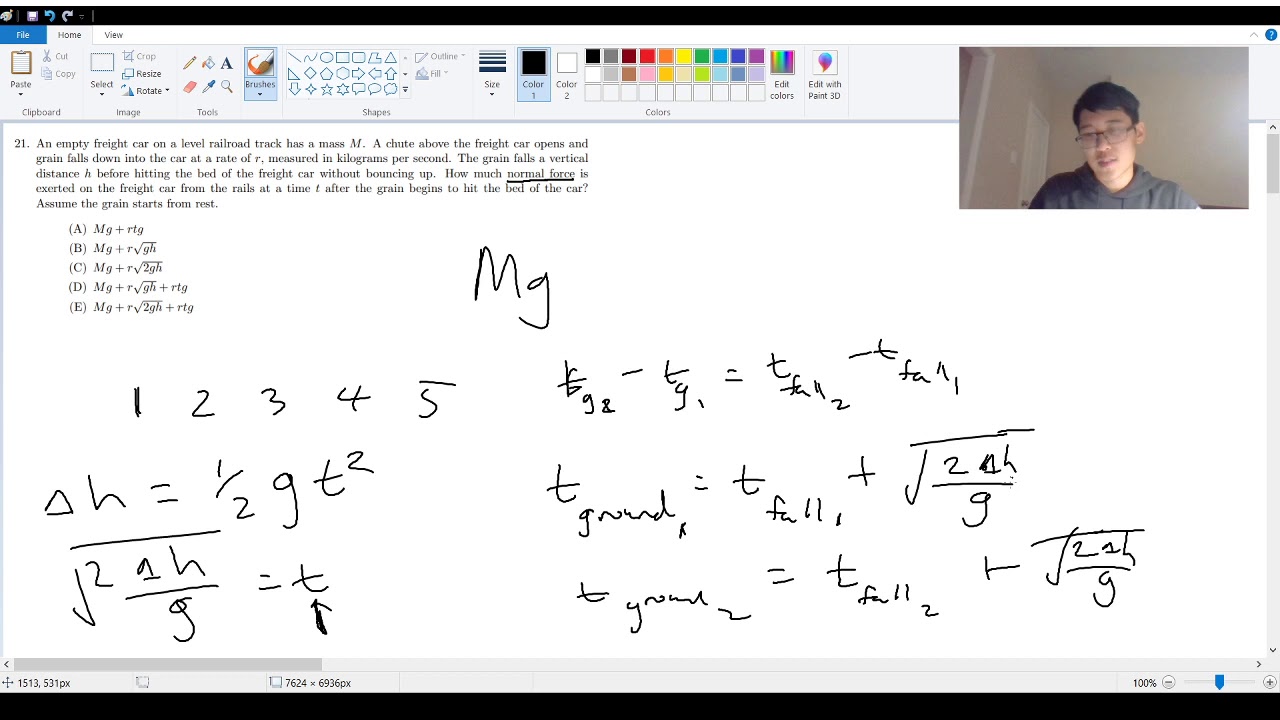 File Home View
Paste Cut Copy Select Crop Resize Rotate A Brushes Outline Fill Size Color 1 Color 2 Edit colors Edit with Paint 3D
Clipboard Image Tools Shapes Colors
21. An empty freight car on a level railroad track has a mass M. A chute above the freight car opens and
grain falls down into the car at a rate of r, measured in kilograms per second. The grain falls a vertical
distance h before hitting the bed of the freight car without bouncing up. How much normal force is
exerted on the freight car from the rails at a time t after the grain begins to hit the bed of the car?
Assume the grain starts from rest.
(A) Mg + rtg
(B) Mg + r√gh
(C) Mg + r√2gh
(D) Mg + r√gh + rtg
(E) Mg + r√2gh + rtg
Mg
t g2 − t g1 = t fall2 − t fall1
1 2 3 4 5
Δh = 1/2 g t²
t ground1 = t fall1 + √(2Δh/g)
√(2Δh/g) = t
t ground2 = t fall2 + √(2Δh/g)
1513, 531px 7624 × 6936px 100%